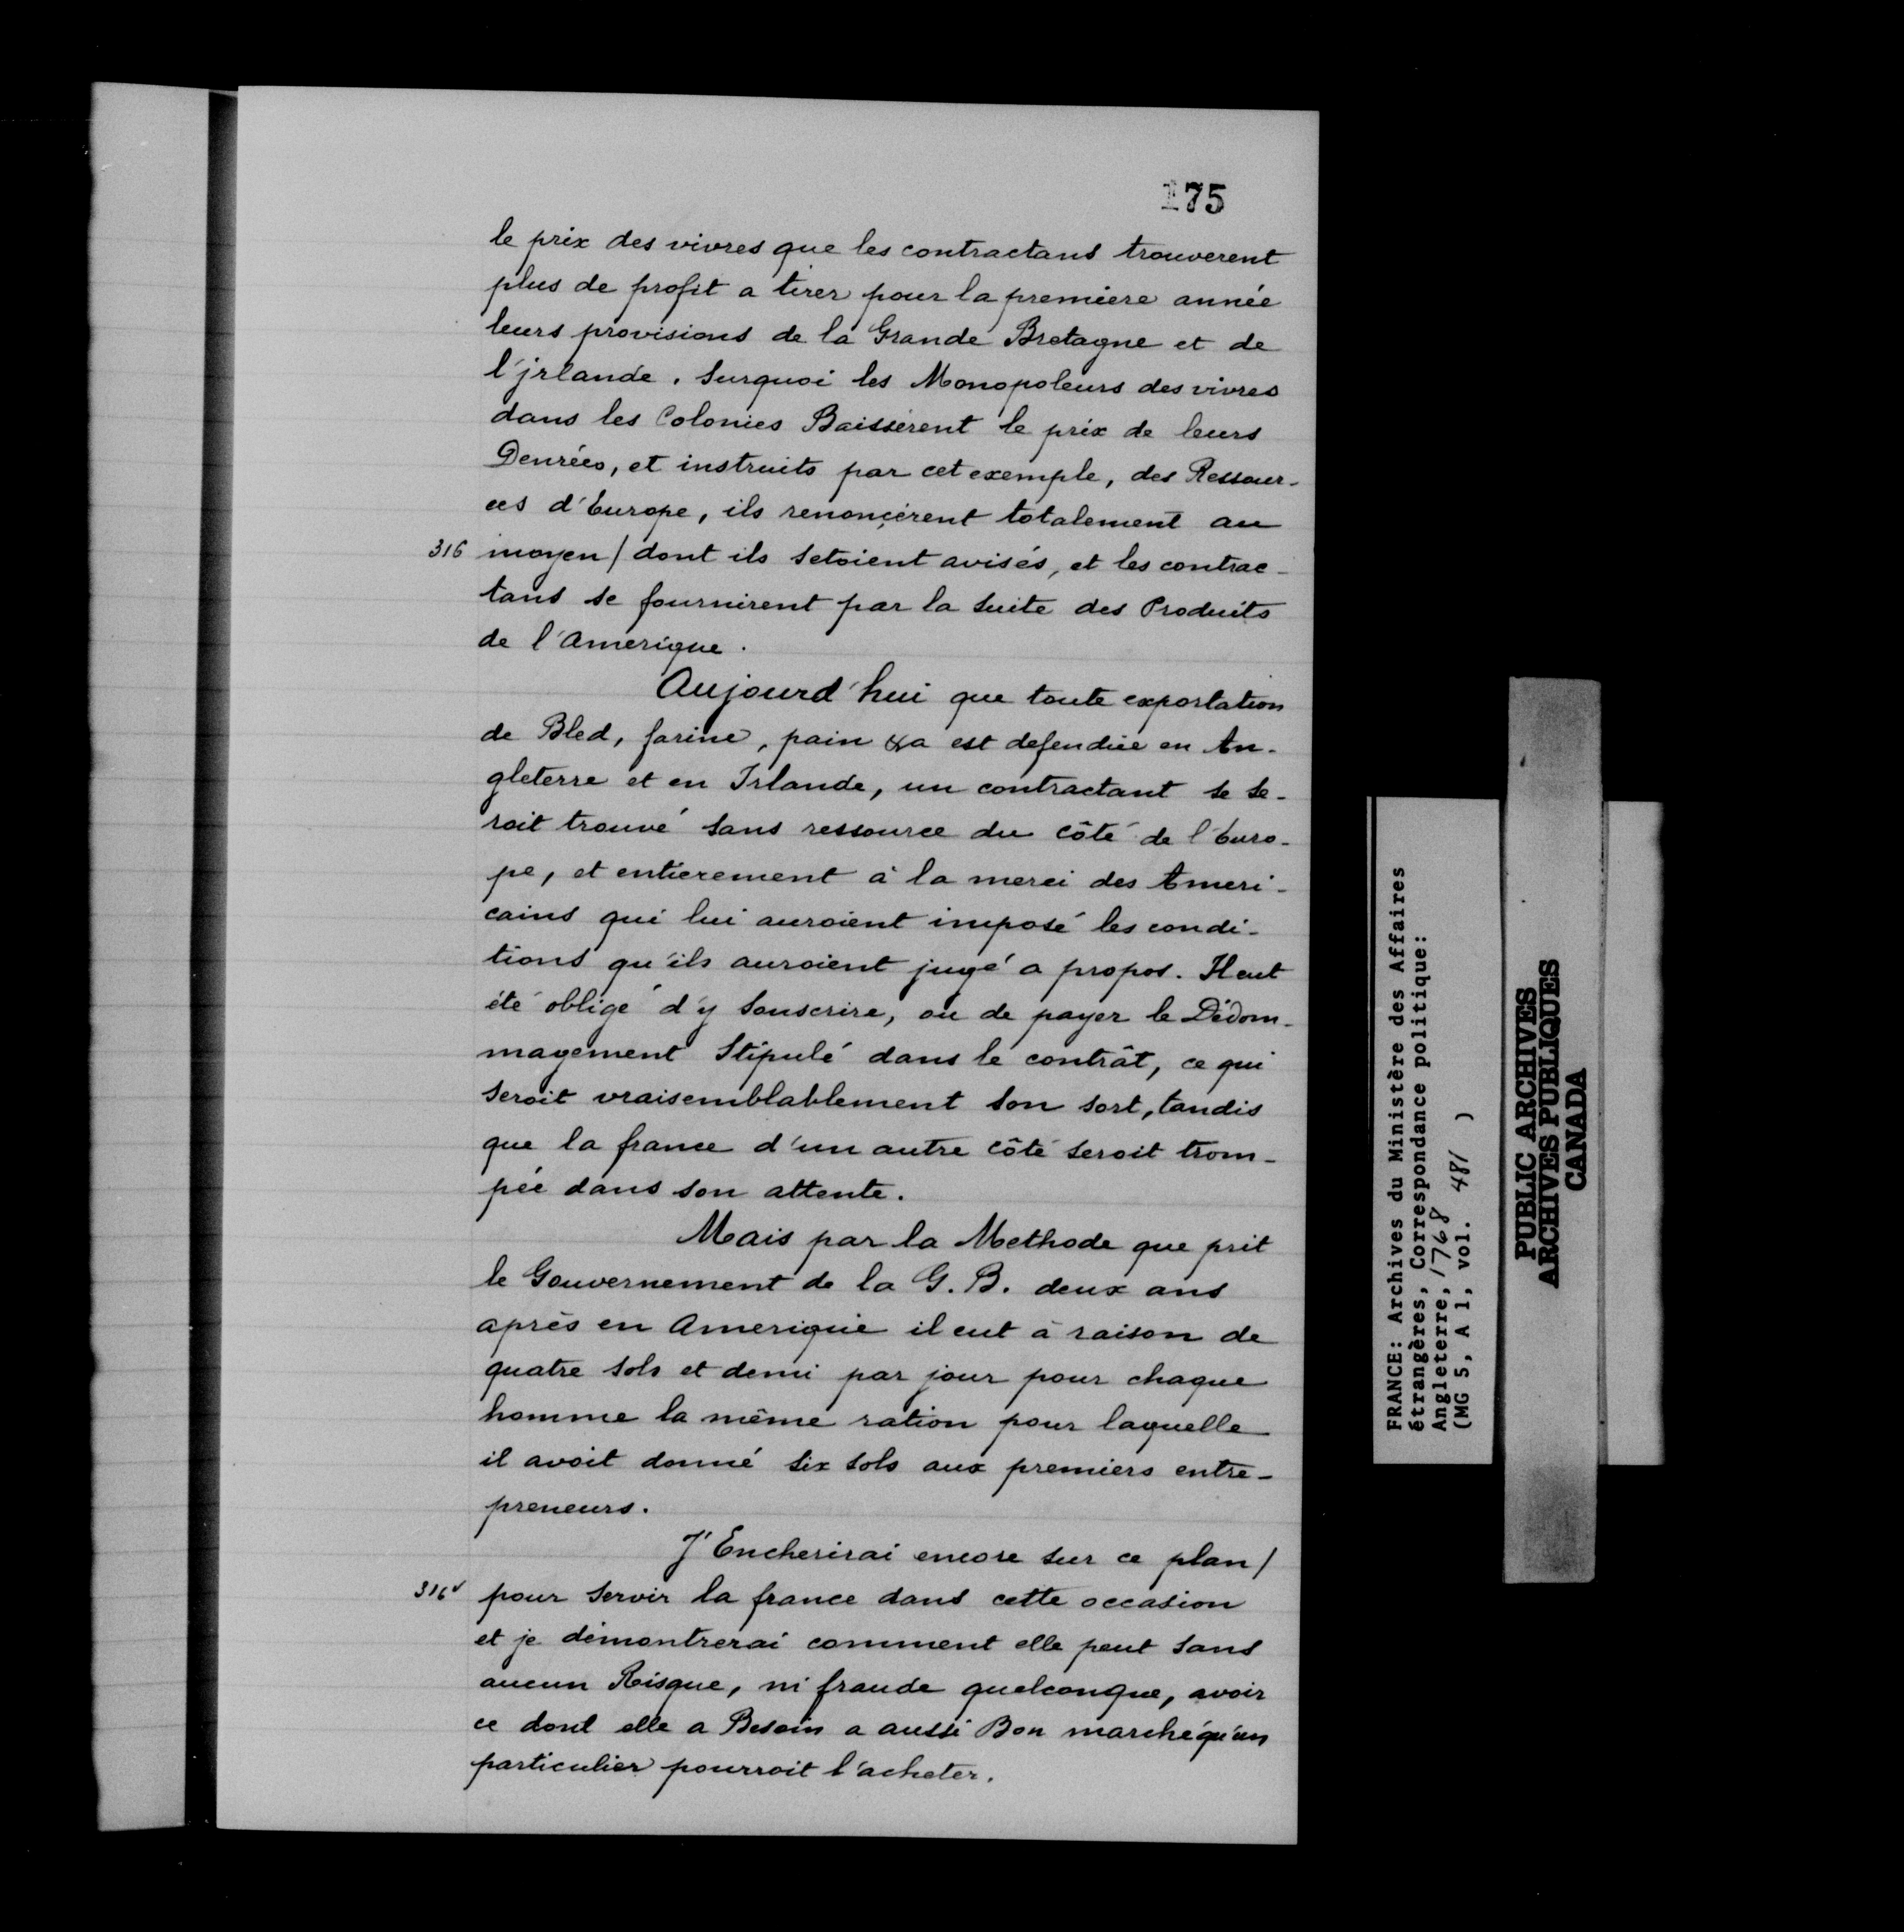 175
le prix des vivres que les contractans trouverent
plus de profit a tirer pour la premiere année
leurs provisions de la Grande Bretagne et de
l'jrlande. Surquoi les Monopoleurs des vivres
dans les Colonies Baissèrent le prix de leurs
Denrées, et instruits par cet exemple, des Ressour-
ces d'Europe, ils renonçèrent totalement au
316 moyen/ dont ils setoient avisés, et les contrac-
tans se fournirent par la suite des Produits
de l'amerique.
Aujourd'hui que toute exportation
de Bled, farine, pain &a est defendüe en An-
gleterre et en Irlande, un contractant se se-
roit trouvé sans ressource du côté de l'Euro-
pe, et entièrement à la merci des Ameri-
cains qui lui auroient imposé les condi-
tions qu'ils auroient jugé a propos. Il eut
été obligé d'y souscrire, ou de payer le Dédom-
magement Stipulé dans le contrât, ce qui
seroit vraisemblablement son sort, tandis
que la france d'un autre côté seroit trom-
pée dans son attente.
Mais par la Methode que prit
le Gouvernement de la G. B. deux ans
après en Amerique il eut à raison de
quatre sols et demi par jour pour chaque
homme la même ration pour laquelle
il avoit donné six sols aux premiers entre-
preneurs.
J'Encherirai encore sur ce plan/
316v pour servir la france dans cette occasion
et je démontrerai comment elle peut sans
aucun Risque, ni fraude quelconque, avoir
ce dont elle a Besoin a aussi Bon marché qu'un
particulier pourroit l'acheter.
FRANCE: Archives du Ministère des Affaires
étrangères, Correspondance politique:
Angleterre, 1768
(MG 5, A 1, vol. 481 )
PUBLIC ARCHIVES
ARCHIVES PUBLIQUES
CANADA